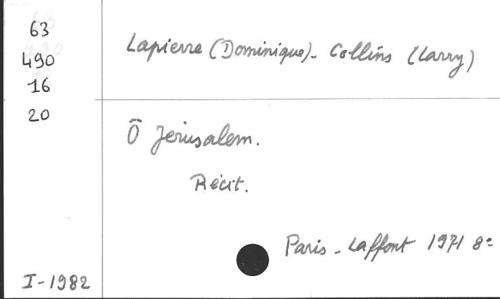 63
490
16
20
Lapierre (Dominique)_ Collins (Larry)
Ô Jérusalem.
Récit.
Paris _ Laffont 1971 8°
I-1982